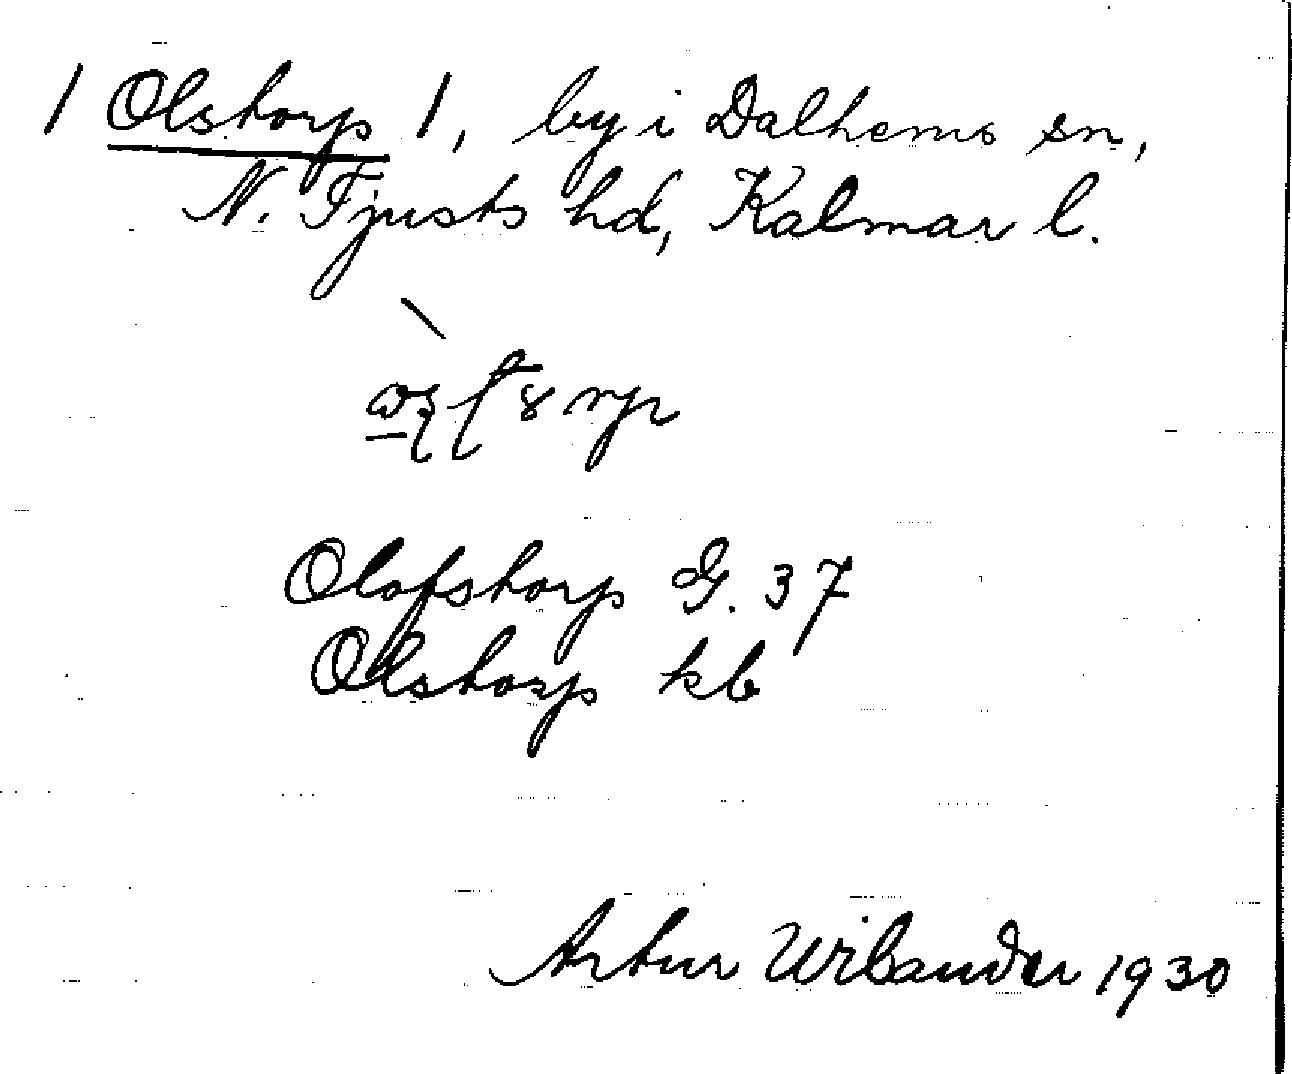 / Olstorp /, by i Dalhems sn,
N. Tjusts hd, Kalmar l.
Olofstorp G. 37
Olstorp kb
Artur Wilander 1930